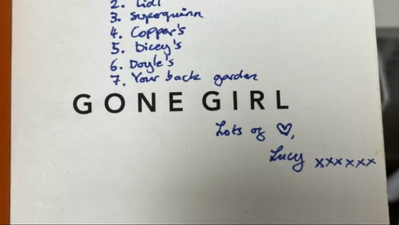 2. Lidl
3. Superquinn
4. Copper's
5. Dicey's
6. Doyle's
7. Your back garden
GONE GIRL
Lots of ♡,
Lucy xxxxxx